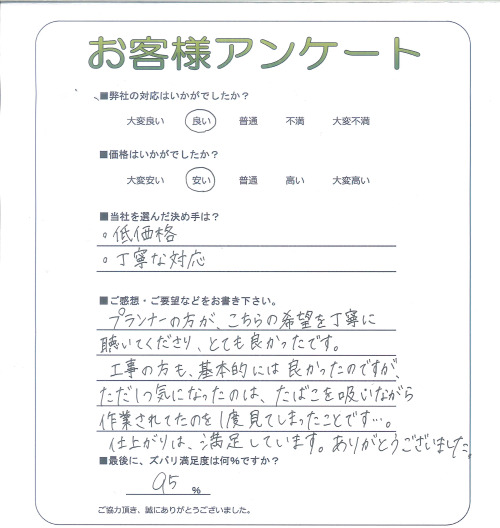 お客様アンケート
■弊社の対応はいかがでしたか？
大変良い 良い 普通 不満 大変不満
■価格はいかがでしたか？
大変安い 安い 普通 高い 大変高い
■当社を選んだ決め手は？
。低価格
。丁寧な対応
■ご感想・ご要望などをお書き下さい。
プランナーの方が、こちらの希望を丁寧に
聴いてくださり、とても良かったです。
工事の方も、基本的には良かったのですが、
ただ1つ気になったのは、たばこを吸いながら
作業されてたのを1度見てしまったことです…。
仕上がりは、満足しています。ありがとうございました。
■最後に、ズバリ満足度は何％ですか？
95 ％
ご協力頂き、誠にありがとうございました。